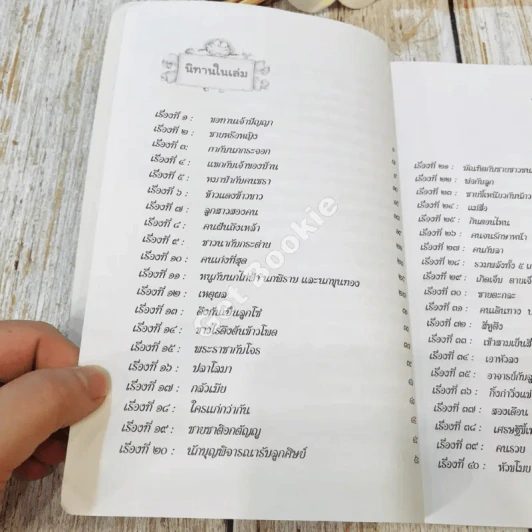 นิทานในเล่ม
เรื่องที่ ๑ : ขอทานเจ้าปัญญา
เรื่องที่ ๒ : ชายหรือหญิง
เรื่องที่ ๓ : กากับนกกระจอก
เรื่องที่ ๔ : แขกกับเจ้าของบ้าน
เรื่องที่ ๕ : หมาป่ากับคนชรา
เรื่องที่ ๖ : ข้าวแดงข้าวขาว
เรื่องที่ ๗ : ลูกสาวสองคน
เรื่องที่ ๘ : คนฝันถึงเหล้า
เรื่องที่ ๙ : ชาวนากับกระต่าย
เรื่องที่ ๑๐ : คนเก่งที่สุด
เรื่องที่ ๑๑ : หนูกับนกไก่ป่า นกพิราบ และนกขุนทอง
เรื่องที่ ๑๒ : เหตุผล
เรื่องที่ ๑๓ : ลิงกับเป็นลูกโซ่
เรื่องที่ ๑๔ : ชาวไร่ลิงต้นข้าวโพด
เรื่องที่ ๑๕ : พระราชากับโจร
เรื่องที่ ๑๖ : ปลาโลมา
เรื่องที่ ๑๗ : กลัวเมีย
เรื่องที่ ๑๘ : ใครแก่กว่ากัน
เรื่องที่ ๑๙ : ชายขาลีอกตัญญู
เรื่องที่ ๒๐ : นักบุญพิจารณารับลูกศิษย์
เรื่องที่ ๒๑ :
เรื่องที่ ๒๒ : พ่อกับลูก
เรื่องที่ ๒๓ : ชายขี้เหนียวกับ
เรื่องที่ ๒๔ : แม่สื่อ
เรื่องที่ ๒๕ : กินตอนไหน
เรื่องที่ ๒๖ : คนจนรักษาหน้า
เรื่องที่ ๒๗ : คนกับลา
เรื่องที่ ๒๘ : รวมพลังทั้ง ๕
เรื่องที่ ๒๙ : เกิดเจ็บ ตายเจ็
เรื่องที่ ๓๐ : ชายตะกละ
เรื่องที่ ๓๑ : คนเดินทาง
เรื่องที่ ๓๒ : ขี่ยูสิง
เรื่องที่ ๓๓ :
เรื่องที่ ๓๔ : เอาหัวลง
เรื่องที่ ๓๕ : อาจารย์กับลู
เรื่องที่ ๓๖ : กิ้งก่าวิ่งแข่
เรื่องที่ ๓๗ : สองเดือน
เรื่องที่ ๓๘ : เศรษฐีขี้เห
เรื่องที่ ๓๙ : คนรวย
เรื่องที่ ๔๐ : หัวขโมย
Get Bookie